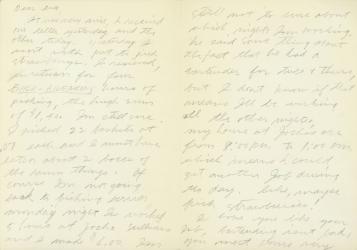 Dear
As you can see, I received
one letter yesterday and the
other today. Saturday I
went with Pat to pick
strawberries. I received,
in return for five
hours of
picking, the huge sum
of $1.42. I'm still sore.
I picked 22 baskets at
each and I must have
eaten about 2 boxes of
the damn things. Of
course I'm not going
back to picking berries
monday night I worked
5 hours at Jocko Sullivans
and I made $6.00. I am
still not to sure about
which nights I'm working.
He said something about
the fact that he had a
bartender for Tues & Thurs
but I don't know if that
means I'll be working
all the other nights.
my hours at Jocko's are
from 8:00 pm to 1:00 am
which means I could
get another job during
the day. Like, maybe
pick strawberries!
I hope you like your
job, bartending isn't bad,
you meet some very